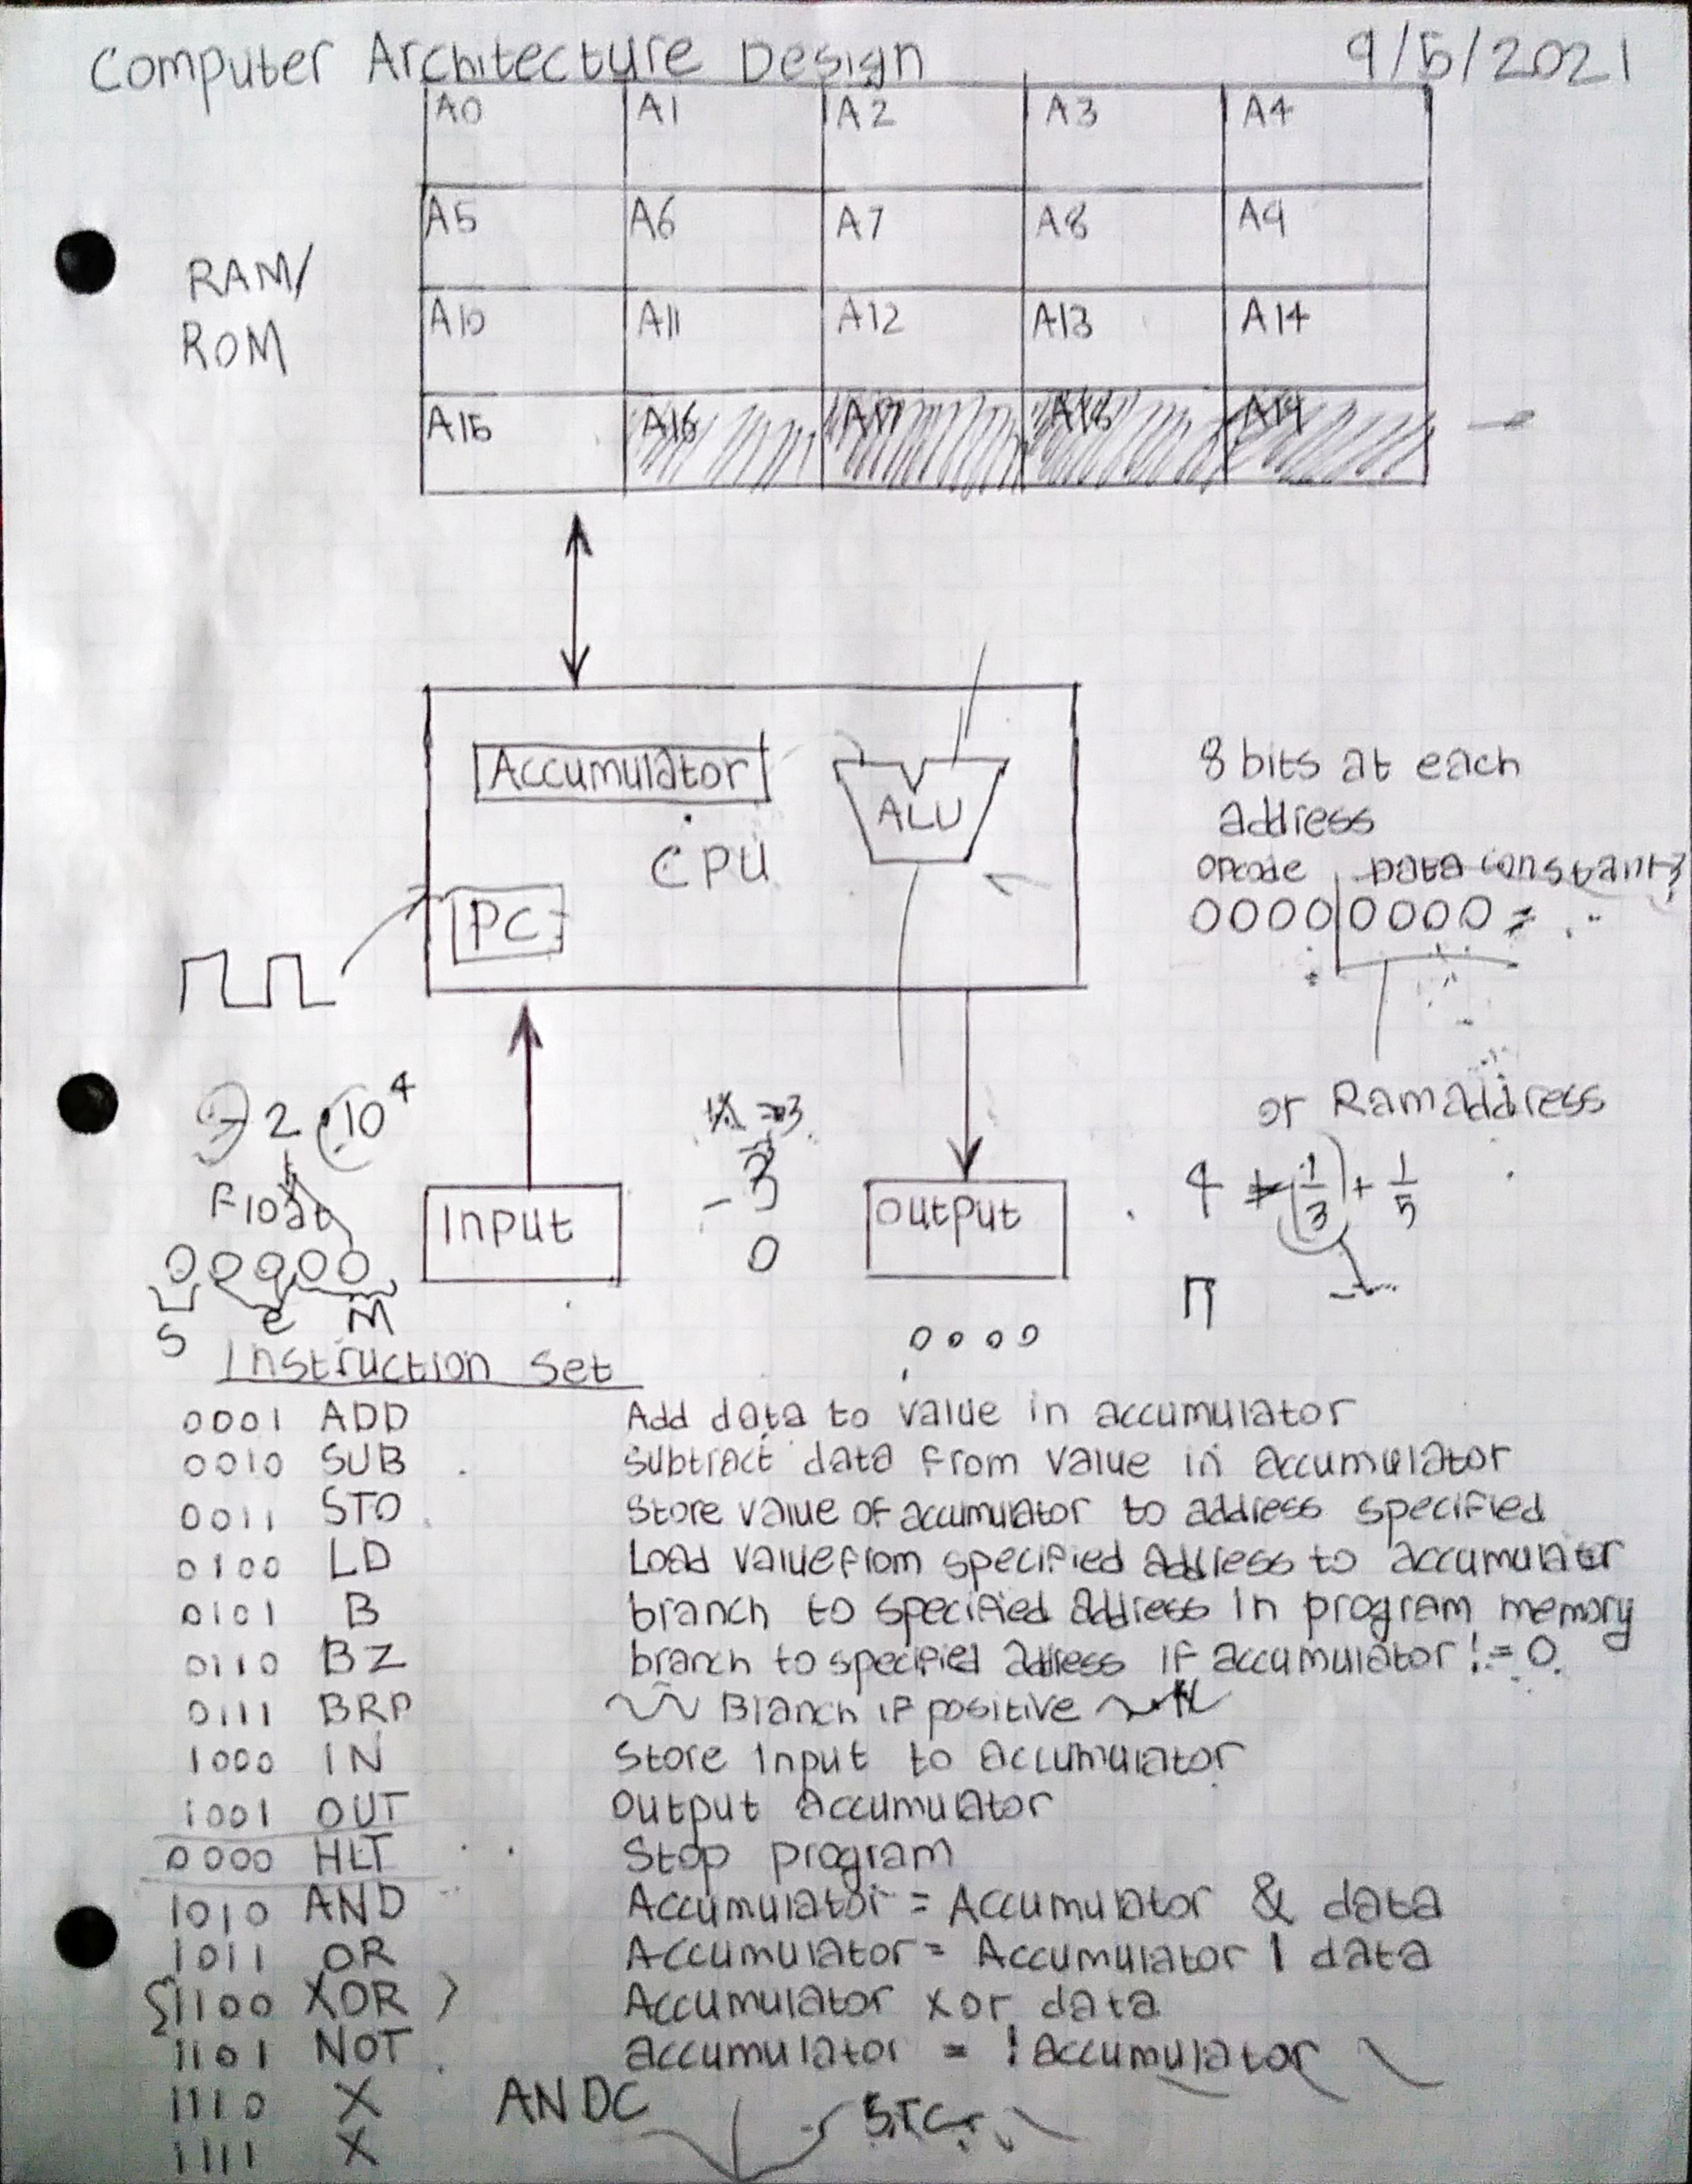 Computer Architecture Design 9/5/2021
A0 A1 A2 A3 A4
A5 A6 A7 A8 A9
RAM/
ROM
A10 A11 A12 A13 A14
A15 A16 A17 A18 A19
Accumulator
ALU
CPU
PC
8 bits at each
address
opcode Data constant?
0000|0000
or Ram address
- 2 · 10^4
Float
00000
S e M
Input
3
- 3
0
Output
0000
4 (1/3) + 1/5
Instruction Set
0001 ADD Add data to value in accumulator
0010 SUB Subtract data from value in accumulator
0011 STO Store value of accumulator to address specified
0100 LD Load value from specified address to accumulator
0101 B branch to specified address in program memory
0110 BZ branch to specified address if accumulator != 0
0111 BRP Branch if positive
1000 IN Store Input to Accumulator
1001 OUT Output Accumulator
0000 HLT Stop program
1010 AND Accumulator = Accumulator & data
1011 OR Accumulator = Accumulator | data
{1100 XOR } Accumulator xor data
1101 NOT accumulator = !Accumulator
1110 X ANDC
1111 X